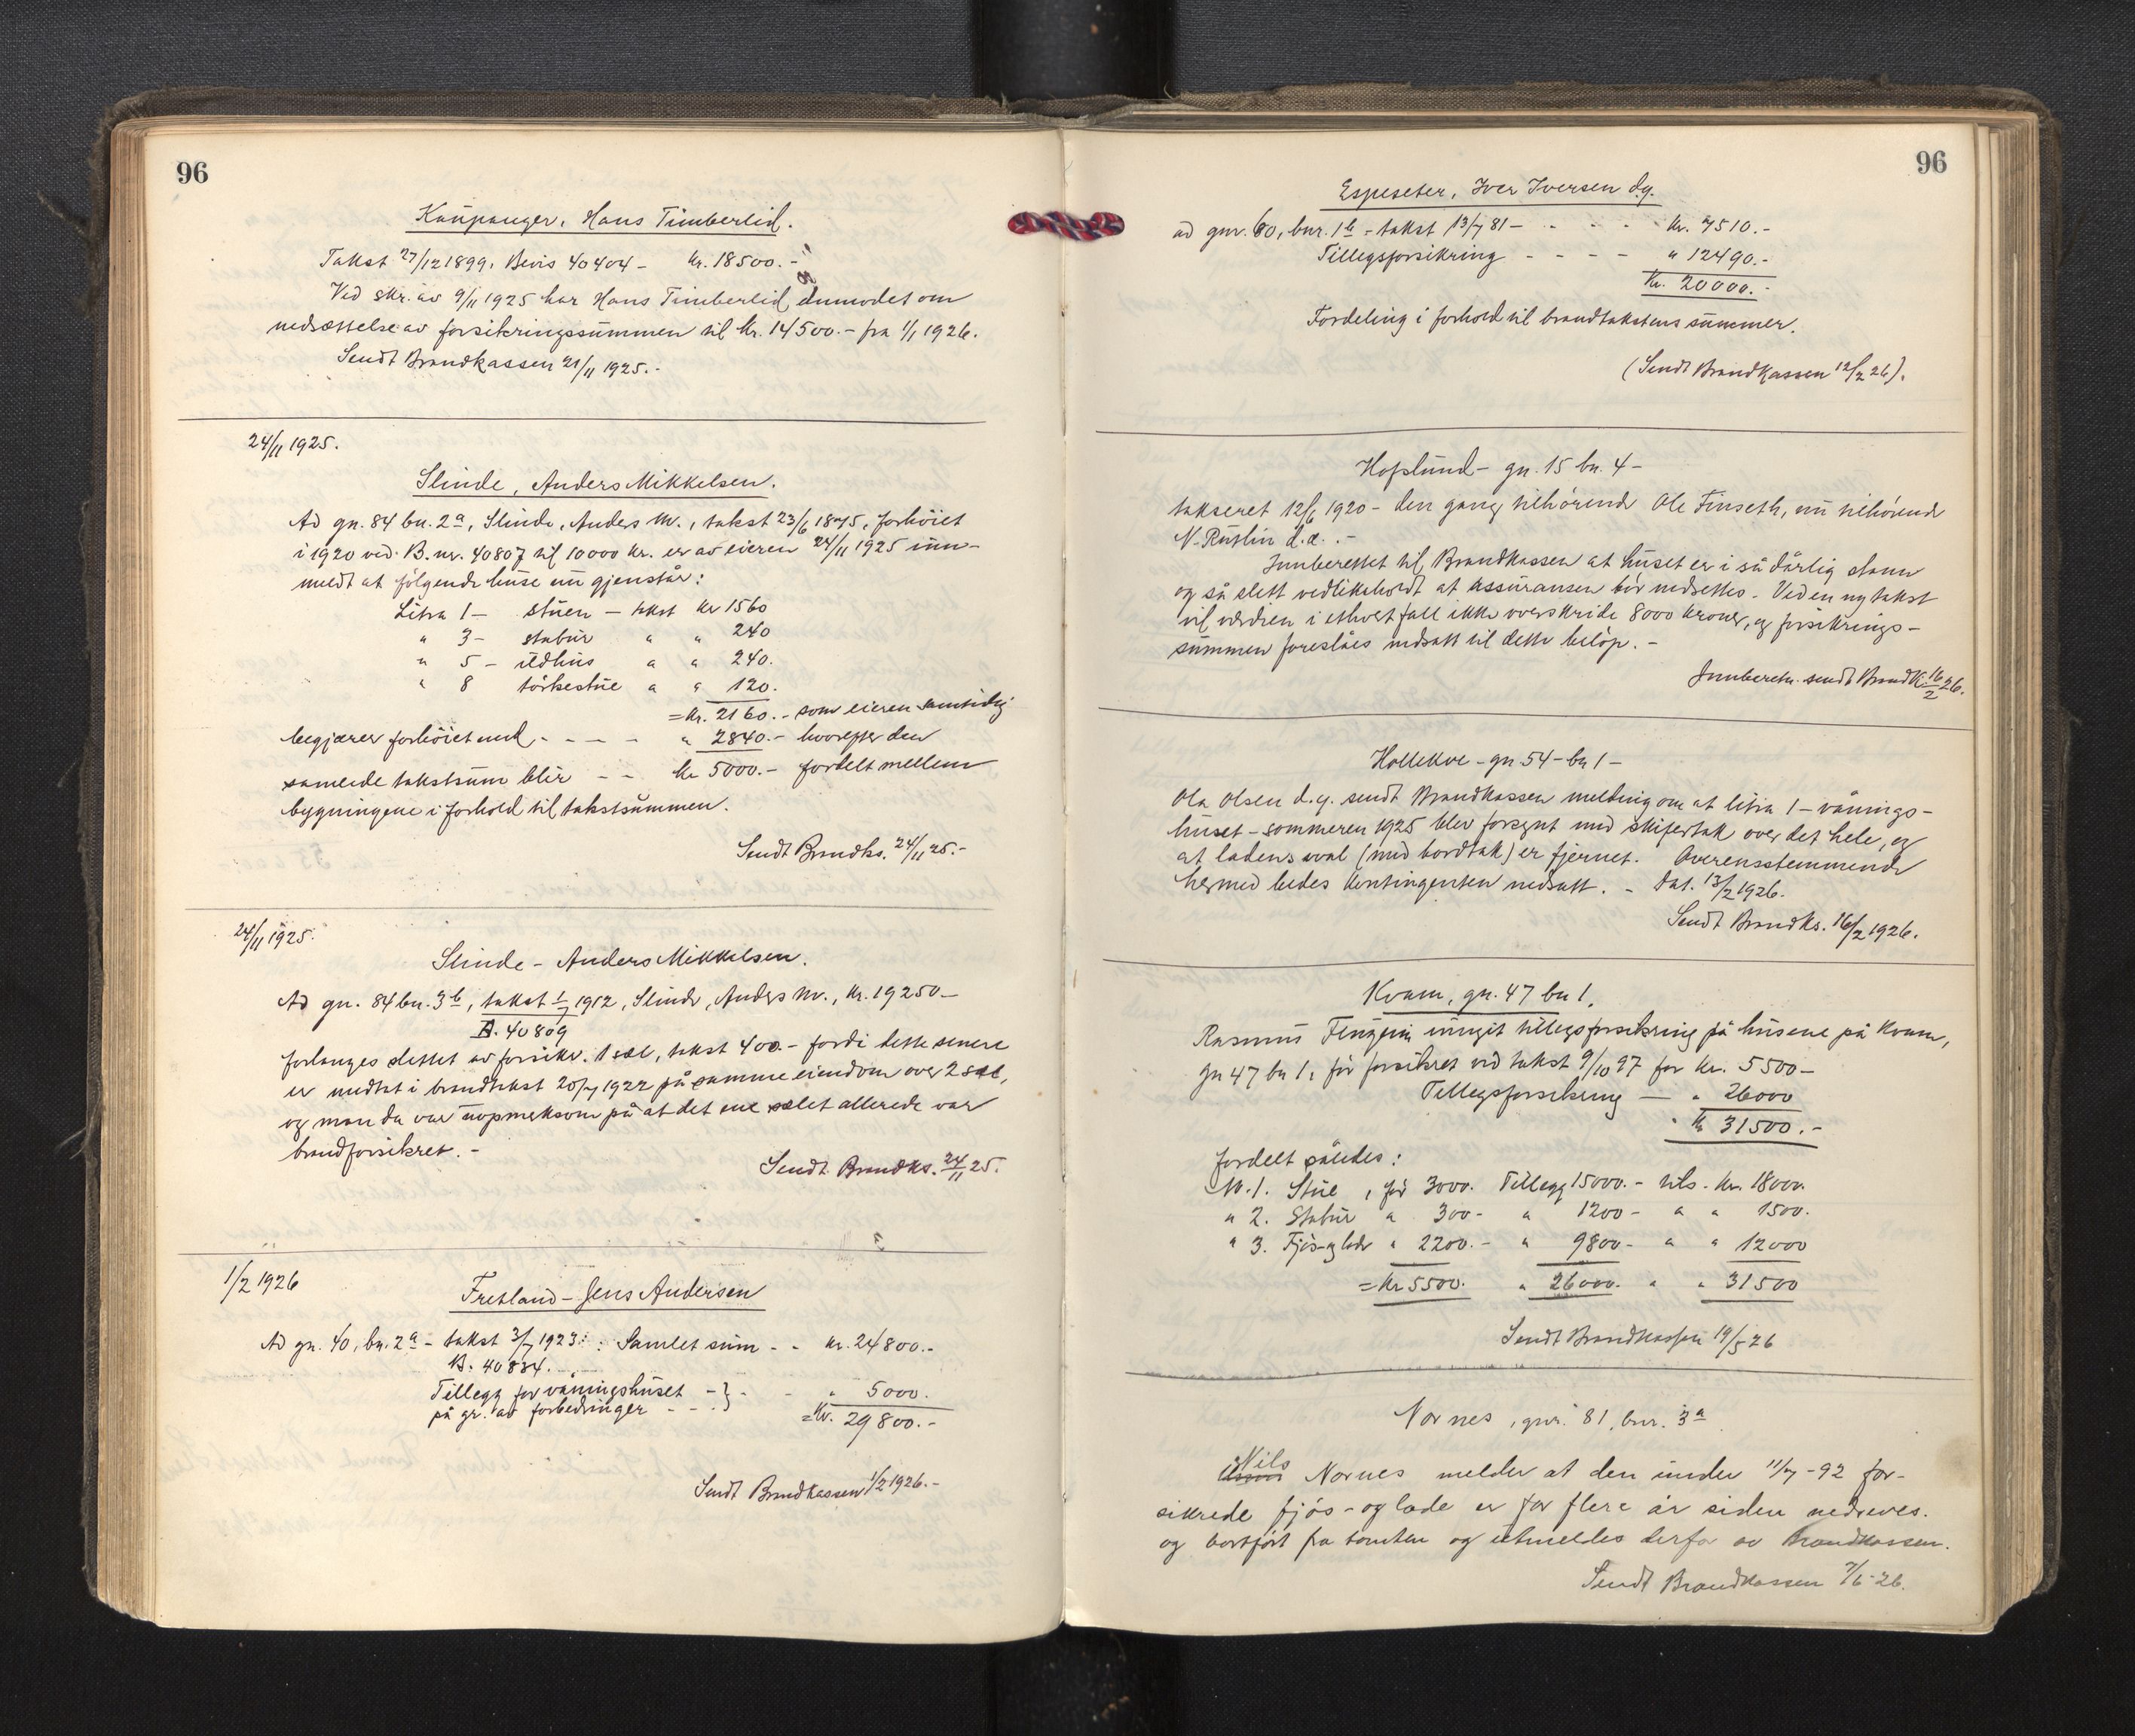 96
Kaupanger, Hans Timberlid.
Takst 27/12 1899, Bevis 40404 - kr. 18500.-
Ved skr. av 9/11 1925 har Hans Timberlid anmodet om
nedsættelse av forsikringssummen til kr. 14500.- fra 1/1 1926.
Sendt Brandkassen 21/11 1925.-
24/11 1925.
Slinde, Anders Mikkelsen.
Ad gn. 84 bn. 2a, Slinde, Anders M., takst 23/6 1875, forhöiet
i 1920 ved B. nr. 40807 til 10000 kr. er av eieren 24/11 1925 inn-
meldt at følgende huse nu gjenstår:
Litra 1 - stuen - takst kr 1560
" 3 - stabur " " 240
" 5 - ildhus " " 240.
" 8 törkestue " " 120.
= kr. 2160.- som eieren samtidig
begjærer forhöiet med - - - - " 2840.- hvorefter den
samlede takstsum blir - - kr 5000.- fordelt mellem
bygningene i forhold til takstsummen.
Sendt Brandks. 24/11 25.-
24/11 1925.
Slinde - Anders Mikkelsen.
Ad gn. 84 bn. 3b, takst 1/7 1912, Slinde, Anders M., kr. 19250-
B. 40809
forlanges slettet av forsikr. 1 sel, takst 400.- fordi dette senere
er medtat i brandtakst 20/7 1922 på samme eiendom over 2 sel,
og man da var uopmerksom på at det ene selet allerede var
brandforsikret.-
Sendt Brandks. 24/11 25.
1/2 1926
Fretland - Jens Andersen
Ad gn. 40, bn. 2a - takst 3/7 1923: Samlet sum - - kr. 24800.-
B. 40834.
Tillegg for våningshuset -} - - " 5000.
på gr. av forbedringer - -
= kr. 29800.-
Sendt Brandkassen 1/2 1926.-
96
Espeseter, Iver Iversen d.y.
ad gnr. 60, bnr. 1b - takst 13/7 81 - - - - kr. 7510.-
Tillegsforsikring - - - - " 12490.-
kr. 20000.-
Fordeling i forhold til brandtakstens summer.
(Sendt Brandkassen 12/2 26).
Hoplund - gn. 15 bn. 4 -
takseret 12/6 1920 - den gang tilhörende Ole Finseth, nu tilhörende
N. Rutlin d.e. .-
Innberettet til Brandkassen at huset er i så dårlig stann
og så slett vedlikeholdt at assuransen bör nedsettes. Ved en ny takst
vil verdien i ethvert fall ikke overskride 8000 kroner, og forsikrings-
summen foreslåes nedsatt til dette belöp.-
Innberetn. sendt Brandk. 16/2 26.
Hollekve - gn 54 - bn 1 -
Ola Olsen d.y. sendt Brandkassen melding om at litra 1 - vånings-
huset - sommeren 1925 blev forsynt med skifertak over det hele, og
at ladens sval (med bordtak) er fjernet. Overensstemmende
hermed bedes kontingenten nedsatt. - Dat. 13/2 1926.
Sendt Brandks. 16/2 1926.
Kvam, gn. 47 bn 1.
Rasmus Flugeim inngit tillegsforsikring på husene på Kvam,
gn 47 bn 1, för forsikret ved takst 9/10 97 for kr. 5500-
Tillegsforsikring - " 26000
kr 31500.-
fordelt således:
N. 1. Stue, för 3000. Tillegg 15000.- tils. kr. 18000.
" 2. Stabur " 300- " 1200- " " 1500.
" 3. Fjös- og lade " 2200.- " 9800- " " 12000
= kr 5500. " 26000. " " 31500
Sendt Brandkassen 19/5 26
Nornes, gnr. 81, bnr. 3a
Nils Nornes melder at den under 11/7 -92 for-
sikrede fjös- og lade er for flere år siden nedreves.
og bortfört fra tomten og utmeldes derfor av Brandkassen.
Sendt Brandkassen 7/6 - 26.